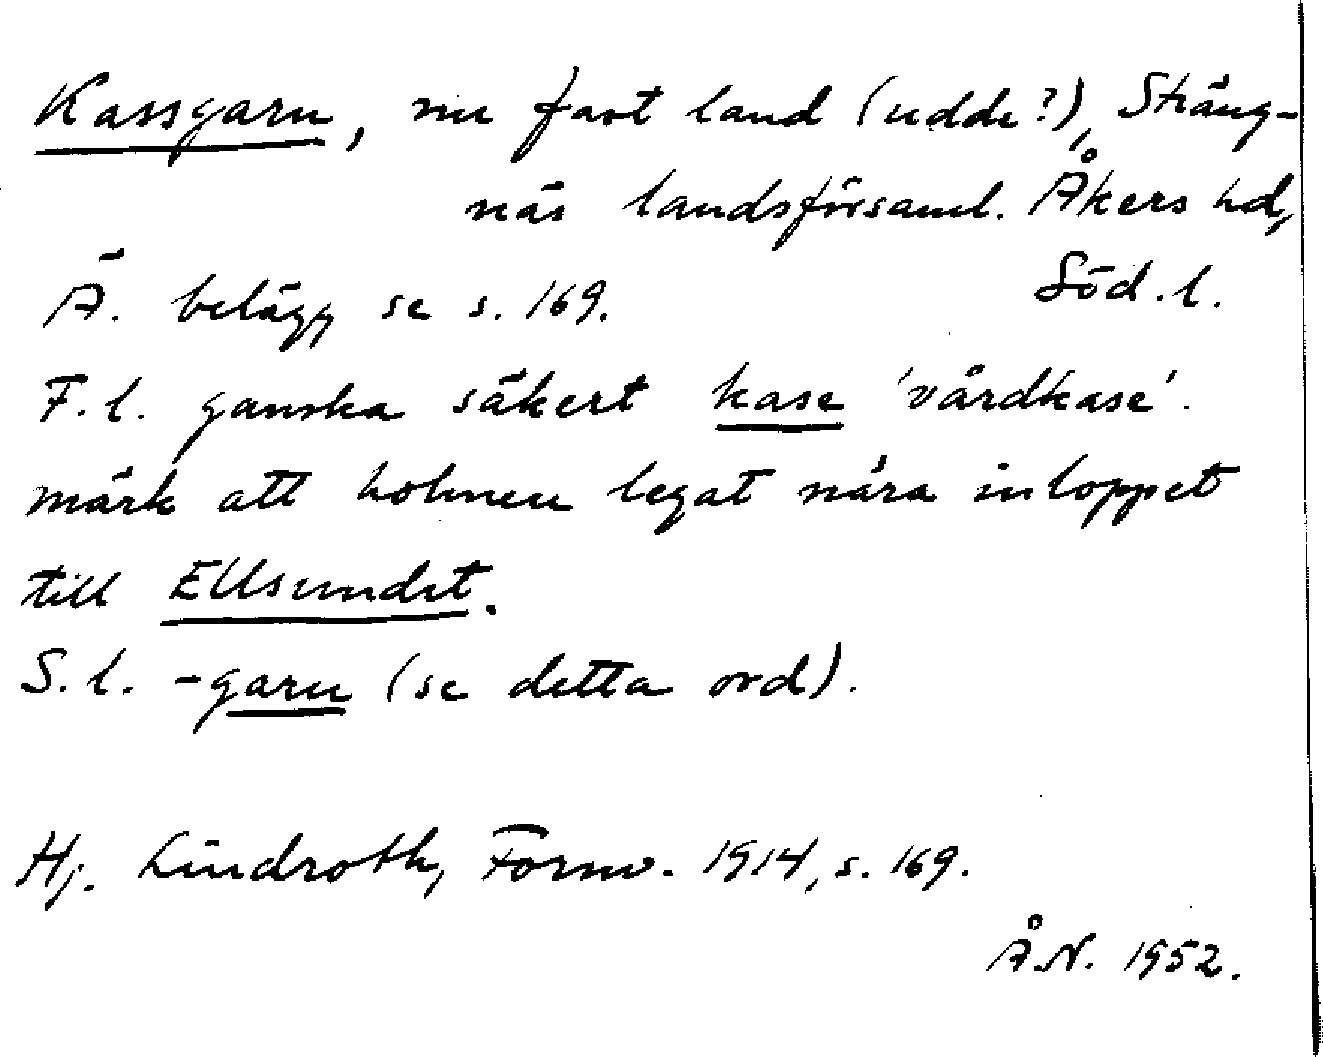 Kassgarn, nu fast land (udde?), Sträng-
näs landsförsaml. Åkers hd,
Söd.l.
Ä. belägg se s. 169.
F.l. ganska säkert kase 'vårdkase'.
märk att holmen legat nära inloppet
till Ellsundet.
S.l. -garn (se detta ord).
Hj. Lindroth, Fornv. 1914, s. 169.
Å.N. 1952.